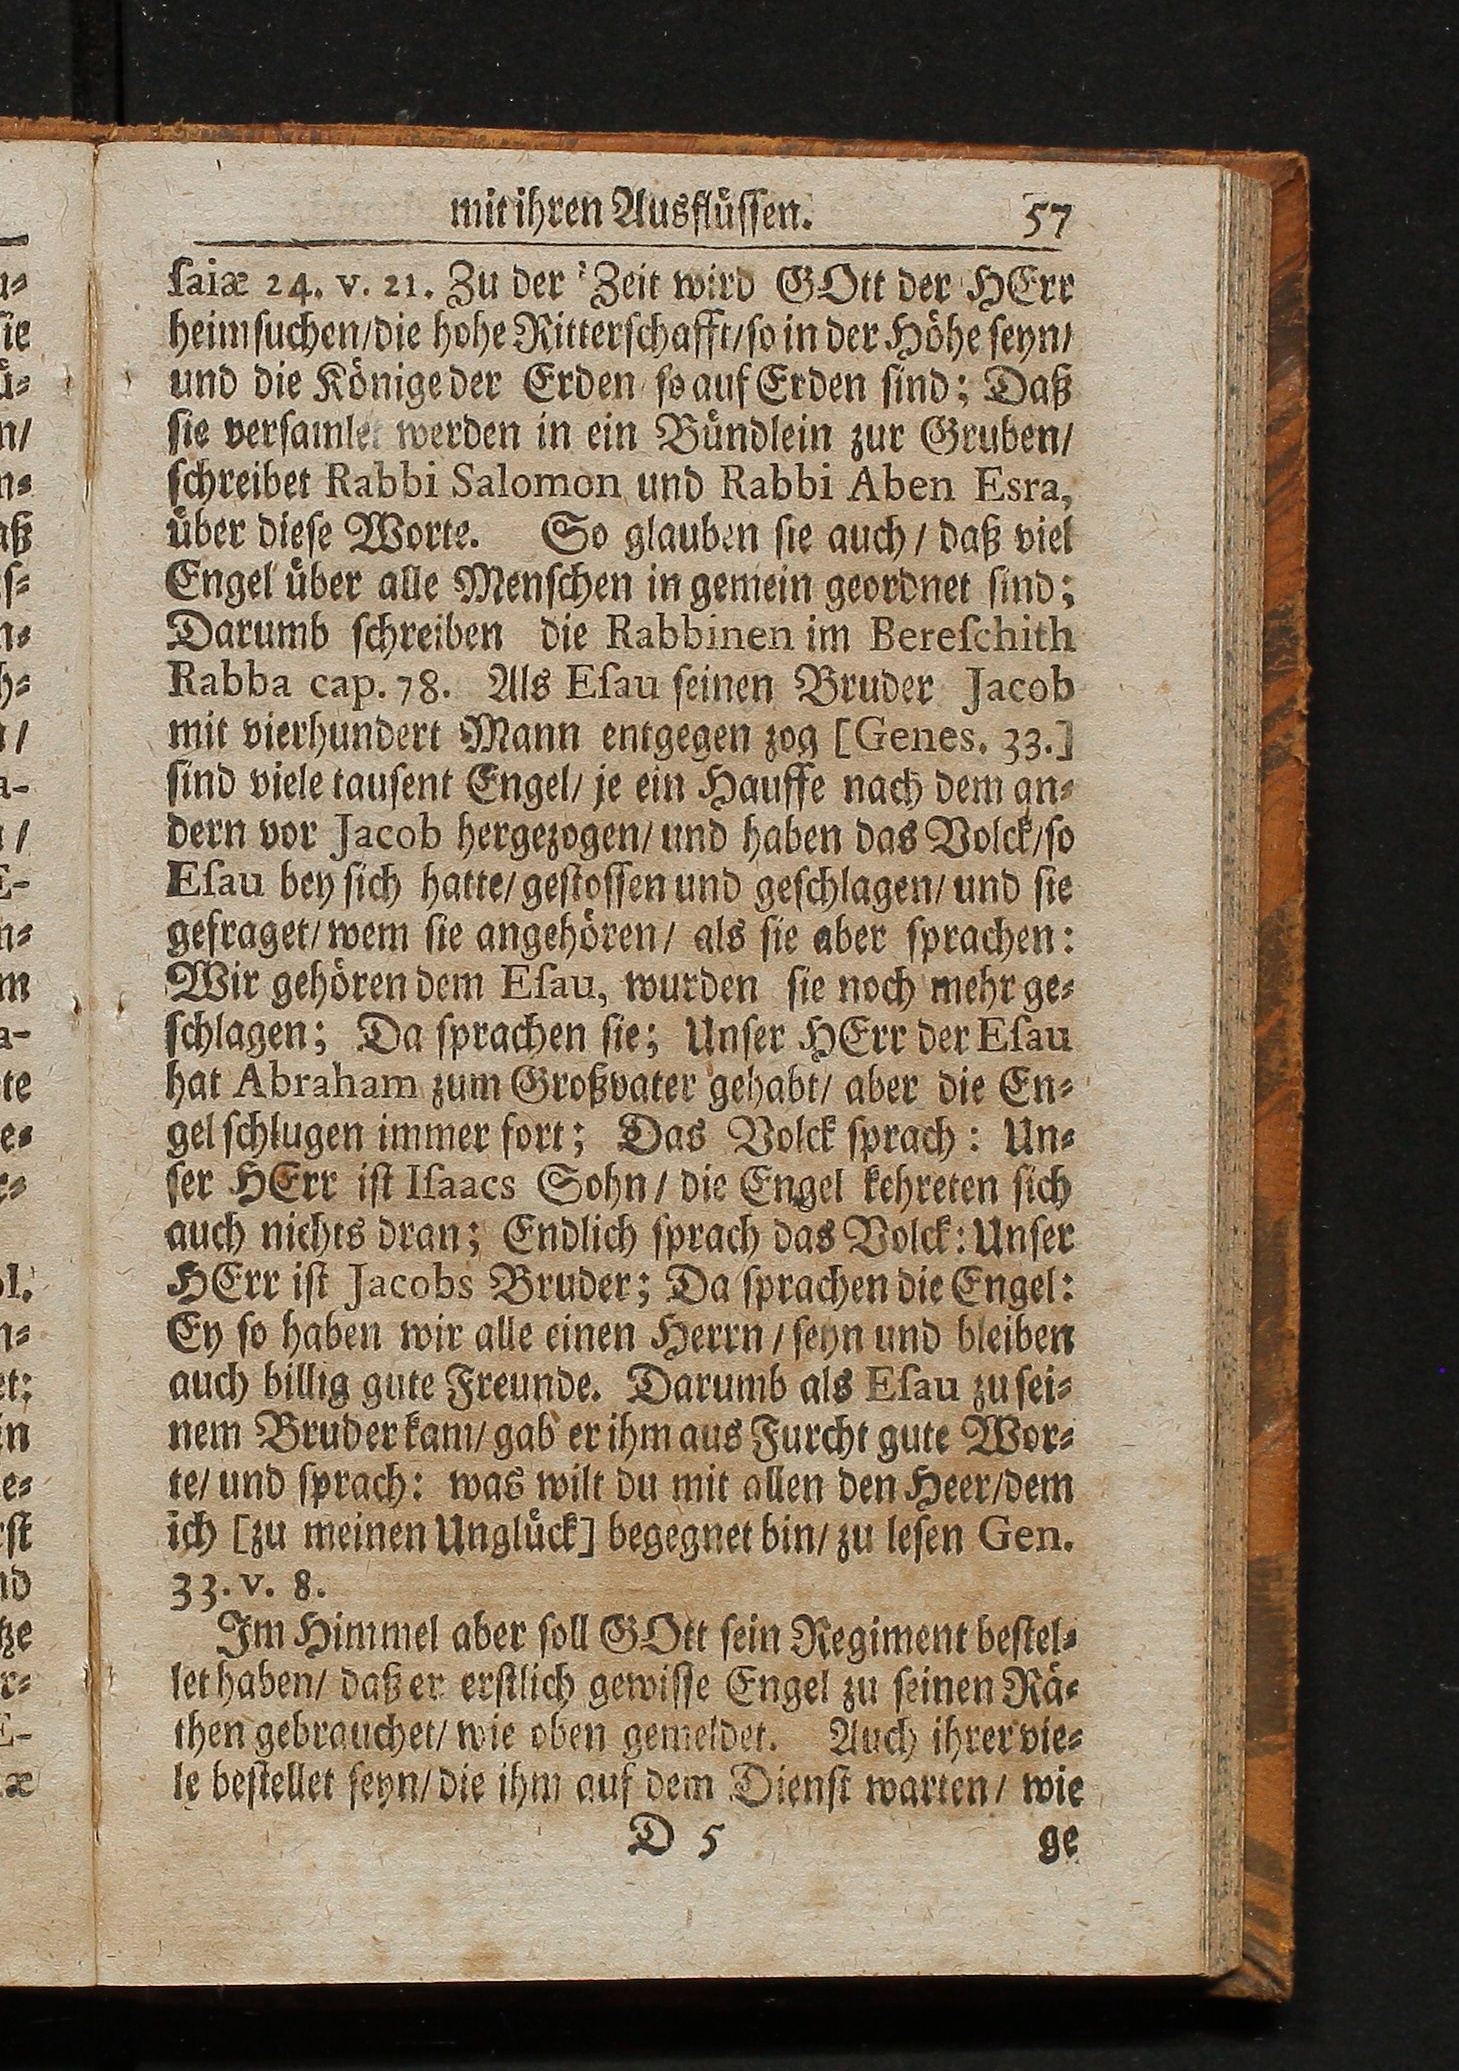 mit ihren Ausflüssen. 57
ſaiæ 24. v. 21. Zu der Zeit wird GOtt der HErr
heimſuchen/die hohe Ritterſchafft/ſo in der Höhe ſeyn/
und die Könige der Erden ſo auf Erden ſind; Daß
ſie verſamlet werden in ein Bündlein zur Gruben/
ſchreibet Rabbi Salomon und Rabbi Aben Esra,
über dieſe Worte. So glauben ſie auch / daß viel
Engel über alle Menſchen in gemein geordnet ſind;
Darumb ſchreiben die Rabbinen im Bereſchith
Rabba cap. 78. Als Eſau ſeinen Bruder Jacob
mit vierhundert Mann entgegen zog [Genes. 33.]
ſind viele tauſent Engel/ je ein Hauffe nach dem an⸗
dern vor Jacob hergezogen/ und haben das Volck/ſo
Eſau bey ſich hatte/ geſtoſſen und geſchlagen/ und ſie
gefraget/ wem ſie angehören/ als ſie aber ſprachen:
Wir gehören dem Eſau, wurden ſie noch mehr ge⸗
ſchlagen; Da ſprachen ſie; Unſer HErr der Eſau
hat Abraham zum Großvater gehabt/ aber die En⸗
gel ſchlugen immer fort; Das Volck ſprach: Un⸗
ſer HErr iſt Iſaacs Sohn / die Engel kehreten ſich
auch nichts dran; Endlich ſprach das Volck: Unſer
HErr iſt Jacobs Bruder; Da ſprachen die Engel:
Ey ſo haben wir alle einen Herrn / ſeyn und bleiben
auch billig gute Freunde. Darumb als Eſau zu ſei⸗
nem Bruder kam/ gab er ihm aus Furcht gute Wor⸗
te/ und ſprach: was wilt du mit allen den Heer/dem
ich [zu meinen Unglück] begegnet bin/ zu leſen Gen.
33. v. 8.
Im Himmel aber ſoll GOtt ſein Regiment beſtel⸗
let haben/ daß er erſtlich gewiſſe Engel zu ſeinen Rä⸗
then gebrauchet/ wie oben gemeldet. Auch ihrer vie⸗
le beſtellet ſeyn/ die ihm auf dem Dienſt warten / wie
D 5 ge